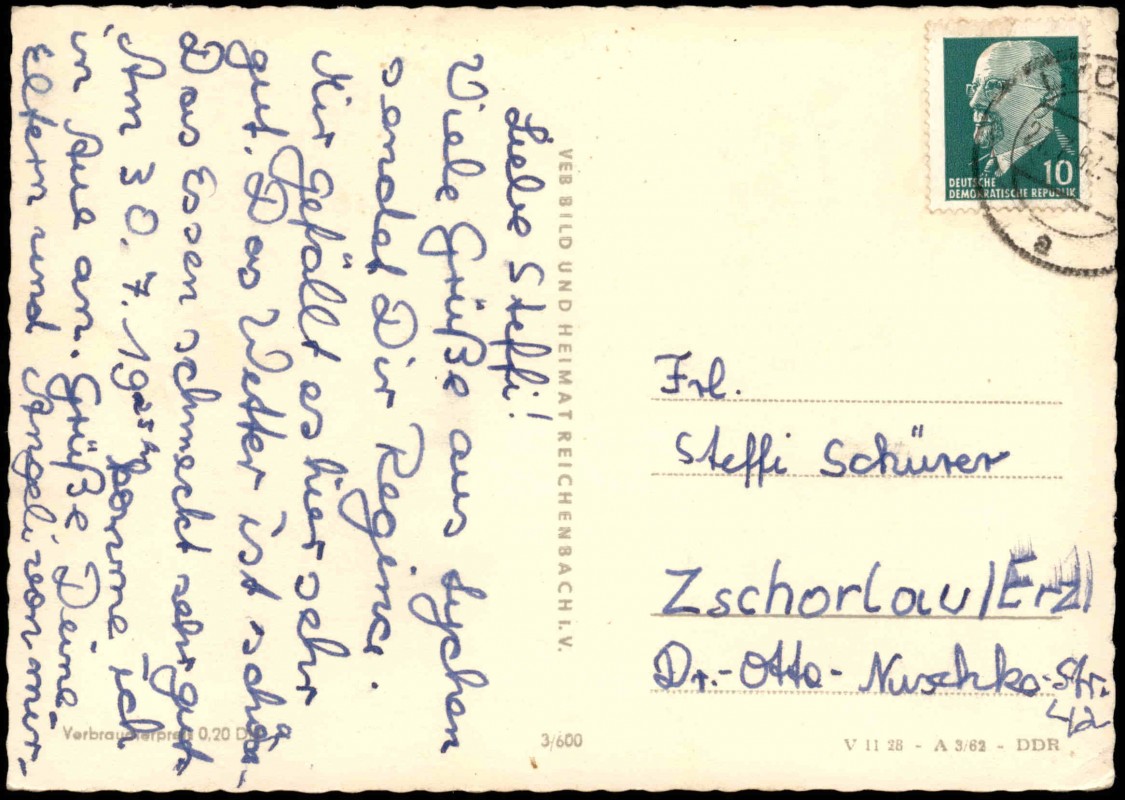 Liebe Steffi!
Viele Grüße aus Lychen
sendet Dir Regina.
Mir gefällt es hier sehr
gut. Das Wetter ist schön.
Das Essen schmeckt sehr gut.
Am 30.7. 19 komme ich
in Aue an. Grüße Deine
Eltern und Angeli von mir.
VEB BILD UND HEIMAT REICHENBACH I. V.
10
DEUTSCHE
DEMOKRATISCHE REPUBLIK
a
Frl.
Steffi Schürer
Zschorlau/Erz
Dr.-Otto-Nuschke-Str.
42
Verbraucherpreis 0,20 D
3/600
V 11 28 - A 3/62 - DDR